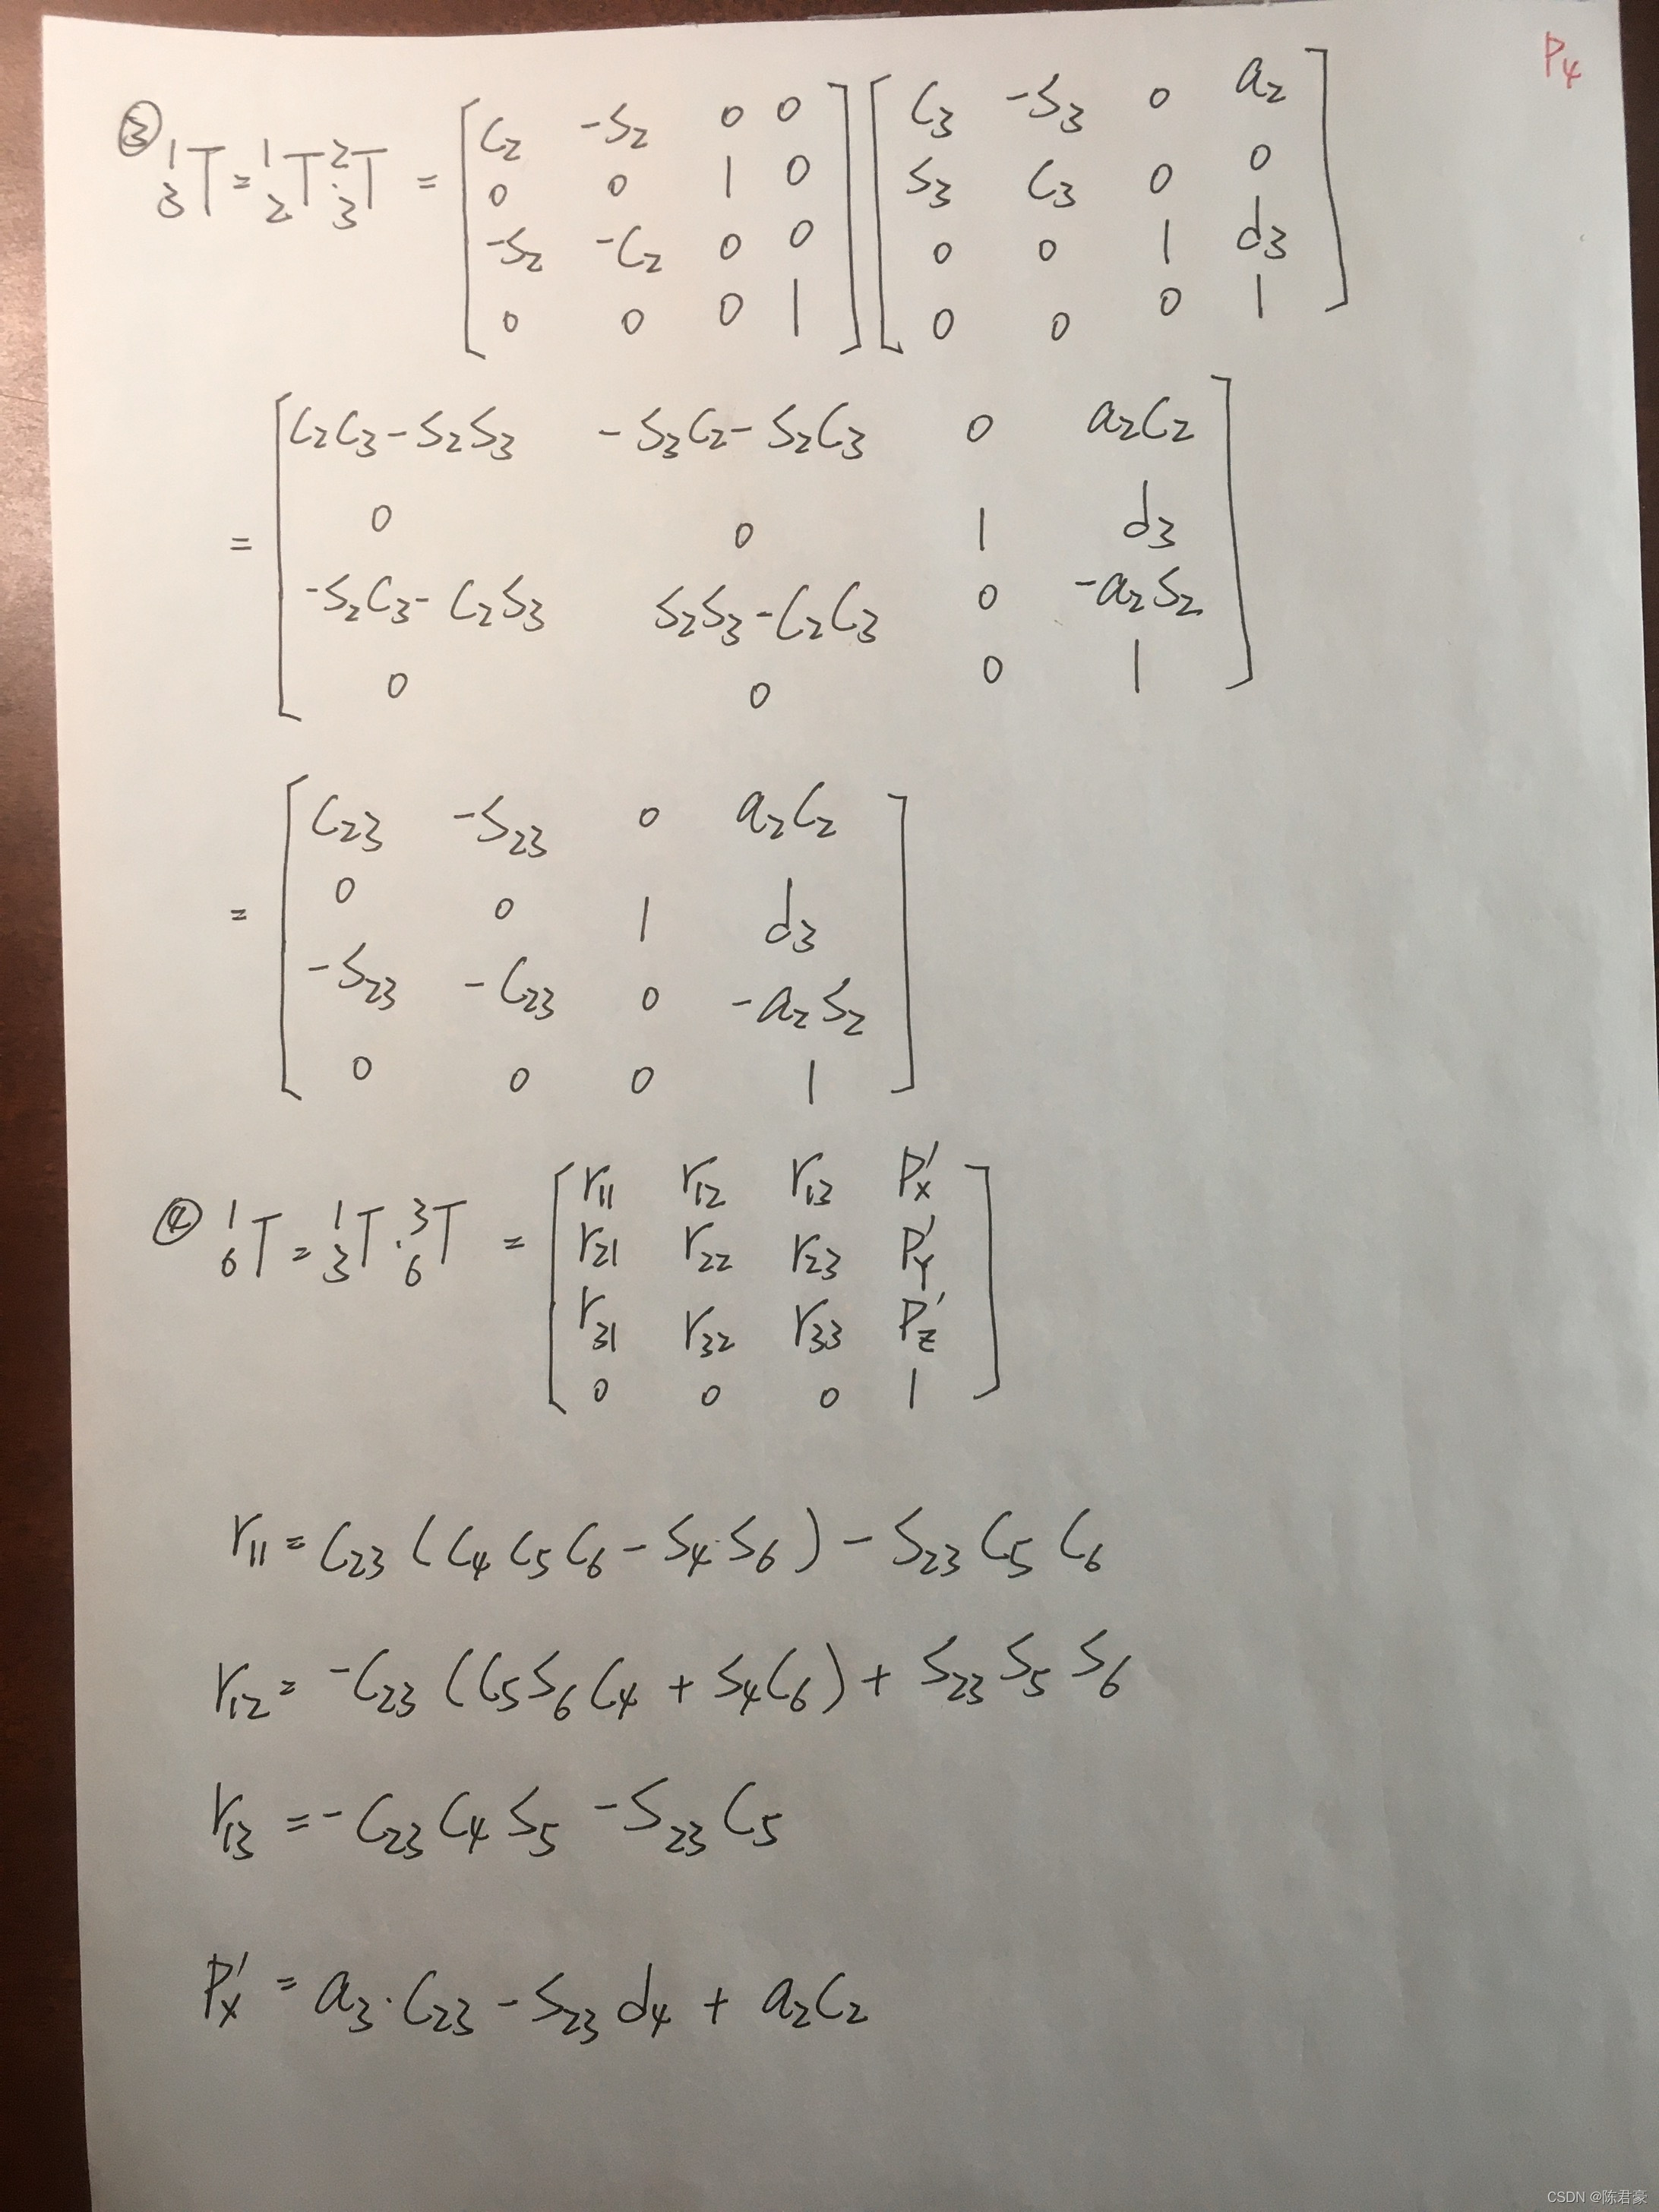 P4
③ ¹₃T = ¹₂T · ²₃T = [C2 -S2 0 0] [C3 -S3 0 a2]
[0 0 1 0] [S3 C3 0 0]
[-S2 -C2 0 0] [0 0 1 d3]
[0 0 0 1] [0 0 0 1]
= [C2C3-S2S3 -S3C2-S2C3 0 a2C2]
[0 0 1 d3]
[-S2C3-C2S3 S2S3-C2C3 0 -a2S2]
[0 0 0 1]
= [C23 -S23 0 a2C2]
[0 0 1 d3]
[-S23 -C23 0 -a2S2]
[0 0 0 1]
④ ¹₆T = ¹₃T · ³₆T = [r11 r12 r13 P'x]
[r21 r22 r23 P'Y]
[r31 r32 r33 P'z]
[0 0 0 1]
r11 = C23 (C4 C5 C6 - S4·S6) - S23 C5 C6
r12 = -C23 (C5S6C4 + S4C6) + S23 S5 S6
r13 = -C23 C4 S5 - S23 C5
P'x = a3·C23 - S23 d4 + a2C2
CSDN @陈君豪